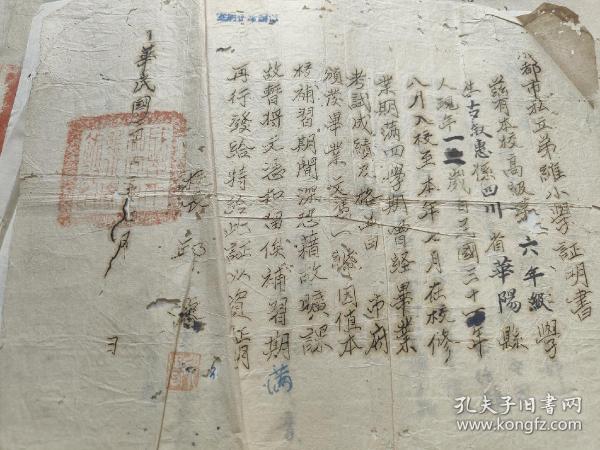 都市私立弟維小學証明書
茲有本校高級第六年級學
生古敘惠係四川省華陽縣
人現年一二歲自民國三十年
八月入校至本年七月在校修
業期滿四學期曾経畢業
考試成績及格並由市府
頒發畢業文憑一紙因值本
校補習期間深恐藉故曠課
故暫將文憑扣留俟補習期滿
再行發給特給此証以資証明
校長邱
華民國三十年月日
孔夫子旧书网
www.kongfz.com